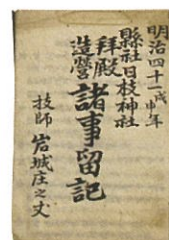 明治四十一戊申年
縣社日枝神社
拜殿
造營
諸事留記
技師 岩城庄之丈